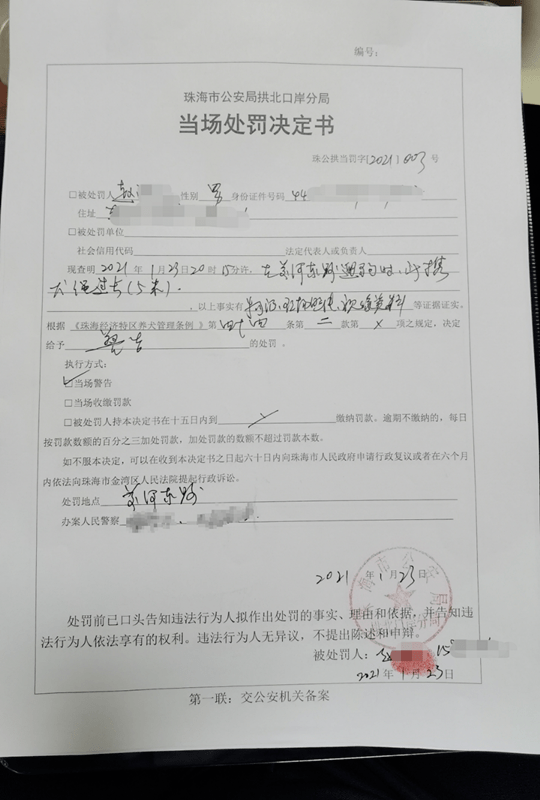 编号：
珠海市公安局拱北口岸分局
当场处罚决定书
珠公拱当罚字[2021]003号
□被处罚人 赵 性别 男 身份证件号码 44
住址
□被处罚单位
社会信用代码 法定代表人或负责人
现查明 2021 年 1 月 23 日 20 时 15 分许， 在 河东路 遛狗时，
犬绳过长（5米）．
，以上事实有 等证据证实，
根据 《珠海经济特区养犬管理条例》第 条第 二 款第 × 项之规定，决定
给予 警告 的处罚 。
执行方式：
☑当场警告
□当场收缴罚款
□被处罚人持本决定书在十五日内到 缴纳罚款。逾期不缴纳的，每日
按罚款数额的百分之三加处罚款，加处罚款的数额不超过罚款本数。
如不服本决定，可以在收到本决定书之日起六十日内向珠海市人民政府申请行政复议或者在六个月
内依法向珠海市金湾区人民法院提起行政诉讼。
处罚地点 河东路
办案人民警察
2021 年 1 月 23 日
处罚前已口头告知违法行为人拟作出处罚的事实、理由和依据，并告知违
法行为人依法享有的权利。违法行为人无异议，不提出陈述和申辩。
被处罚人：
2021 年 1 月 23 日
第一联：交公安机关备案